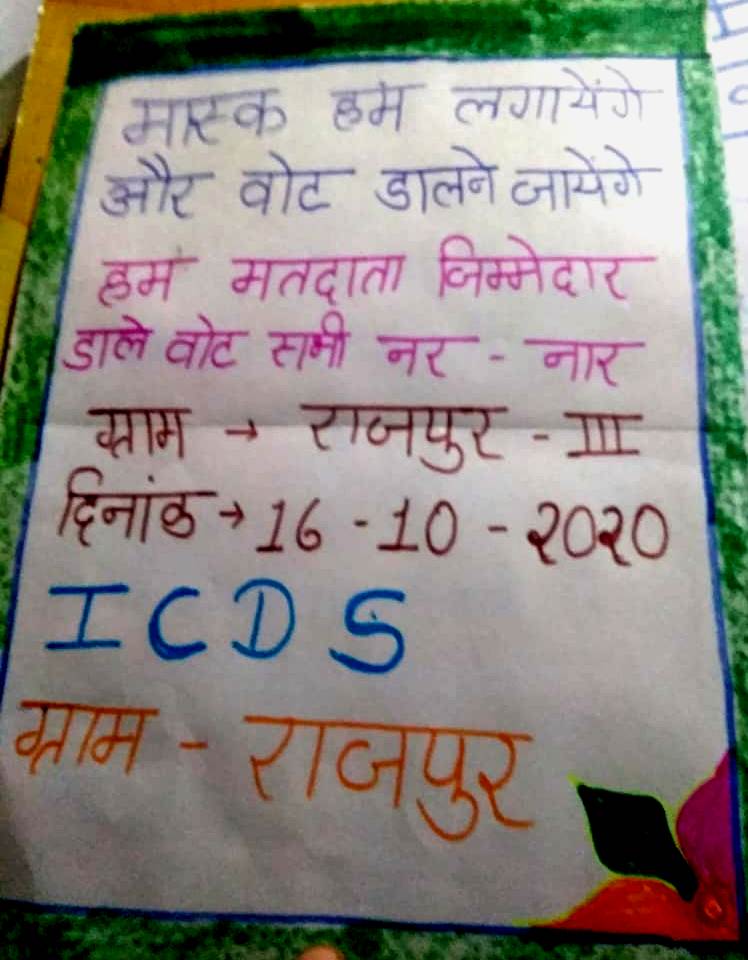 मास्क हम लगायेंगे
और वोट डालने जायेंगे
हम मतदाता जिम्मेदार
डाले वोट सभी नर - नार
ग्राम → राजपुर - III
दिनांक → 16 - 10 - 2020
ICDS
ग्राम - राजपुर